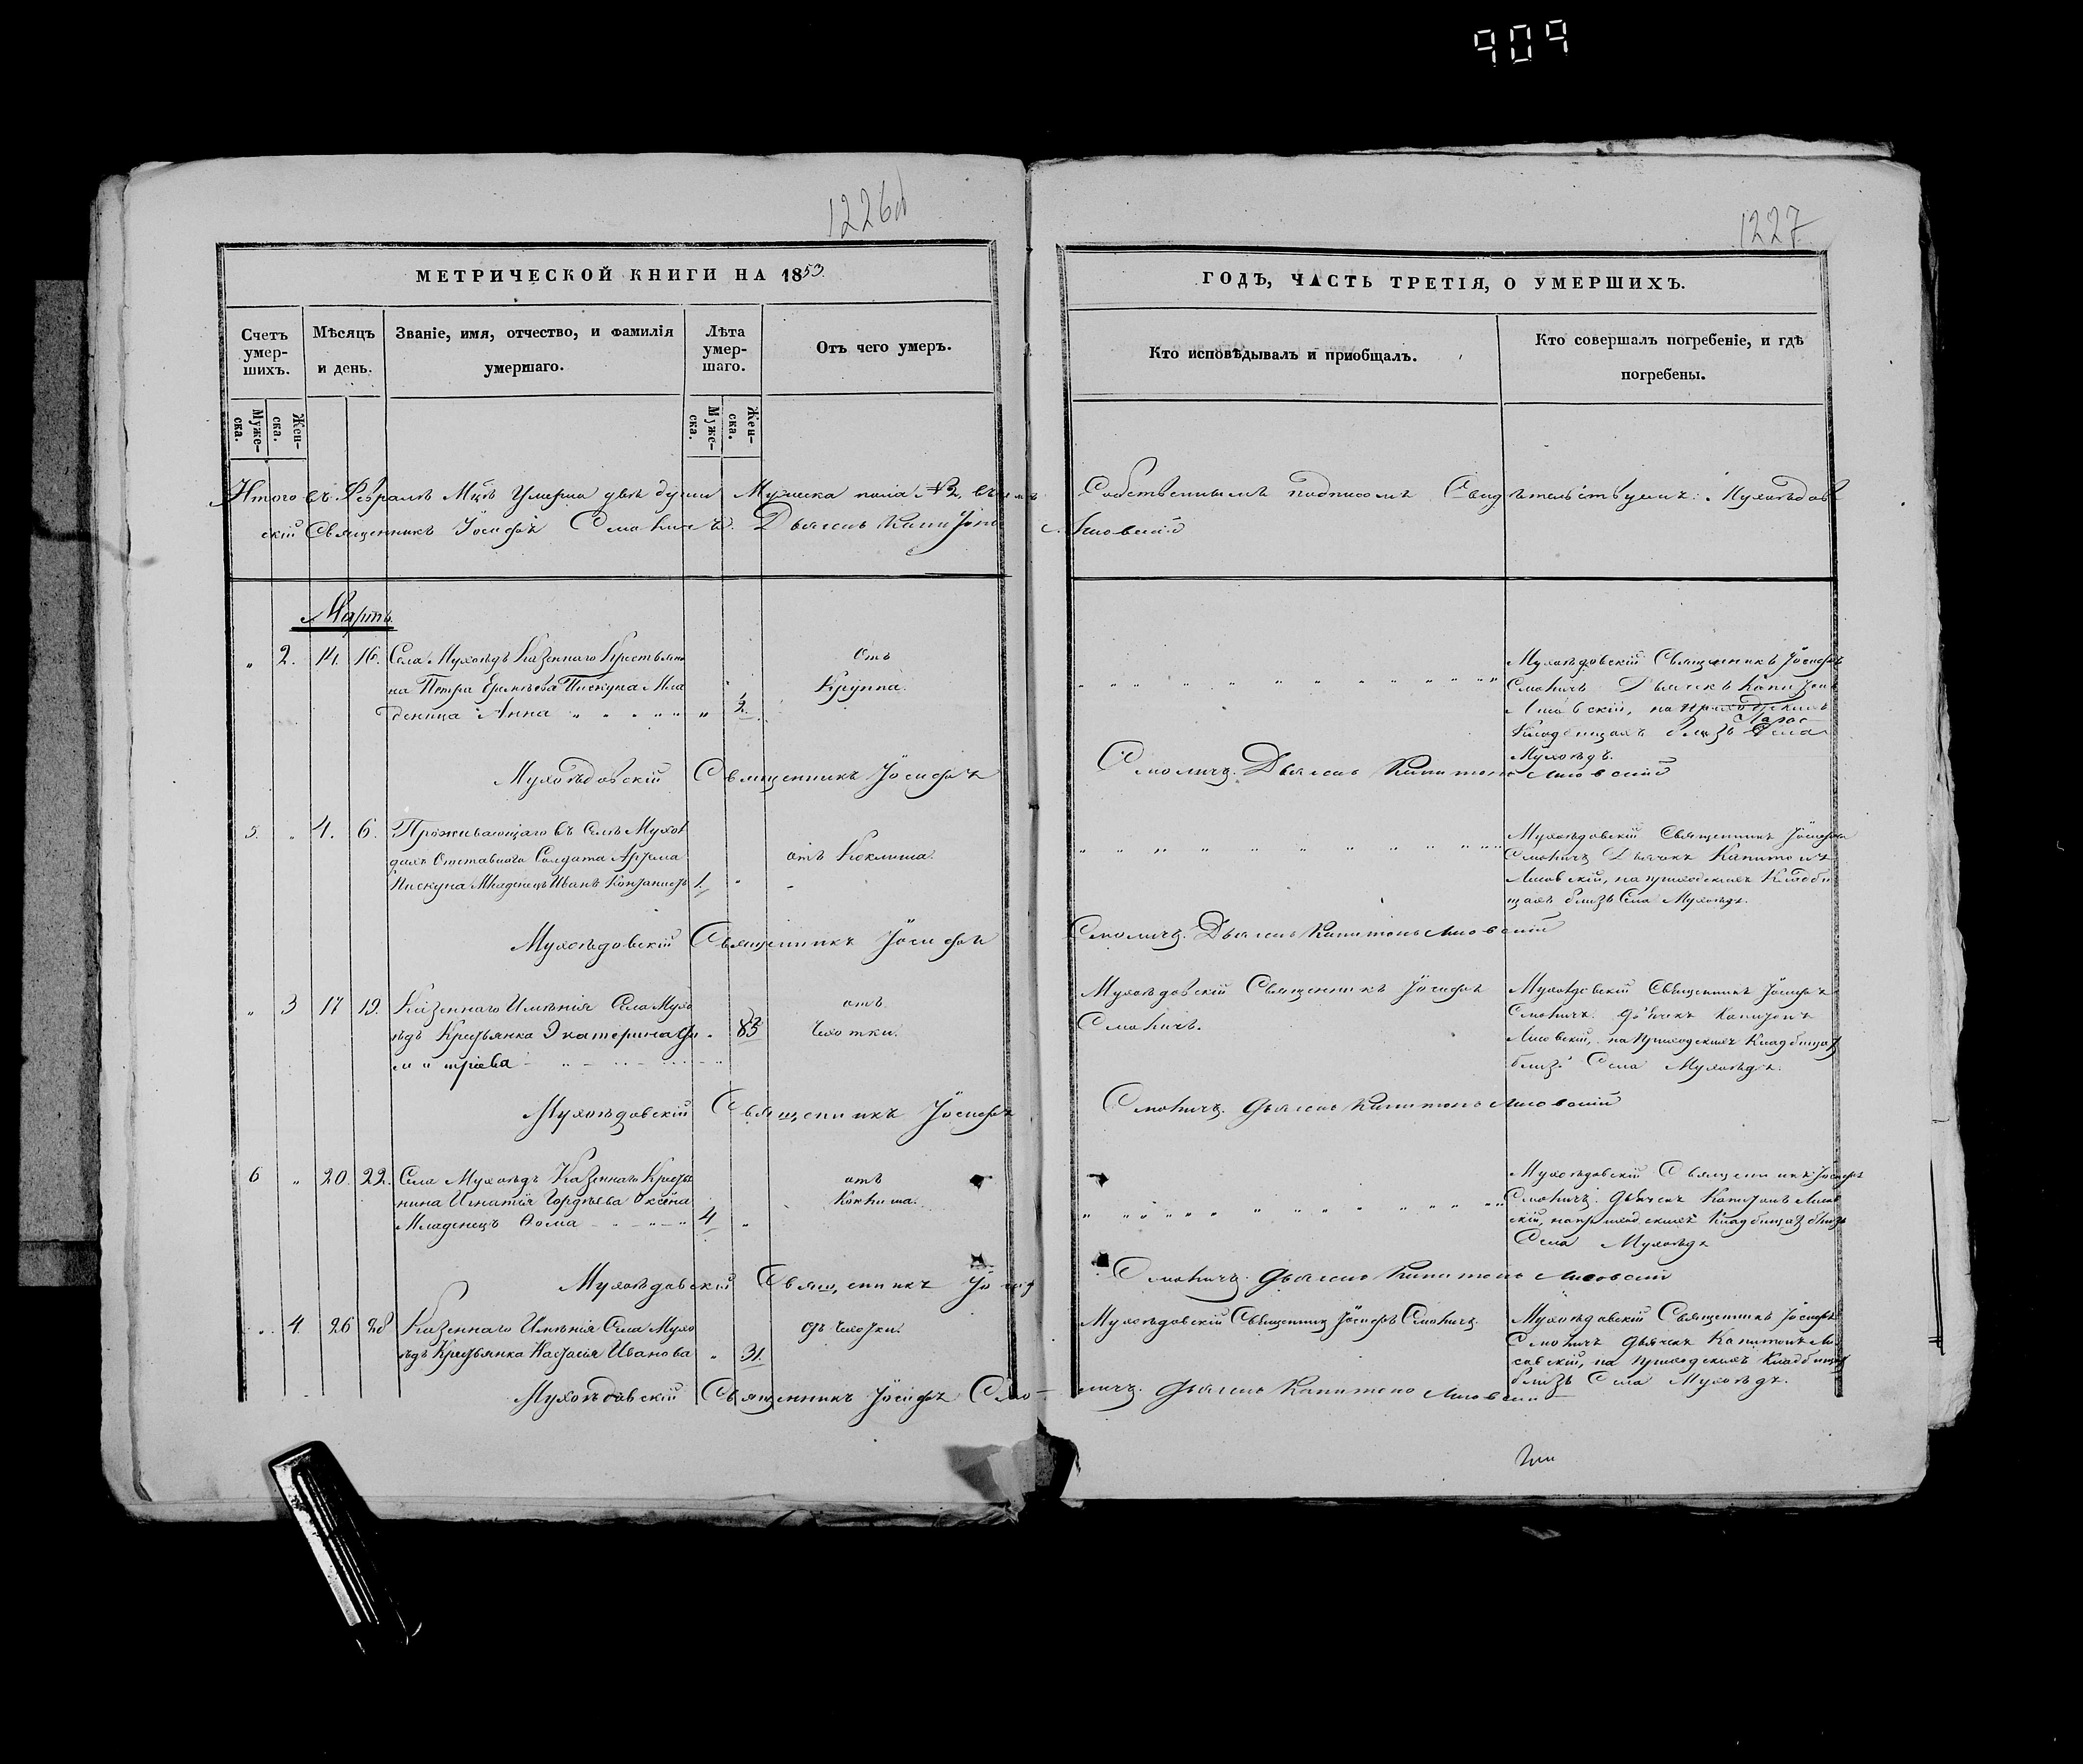 909
1226об
1227
МЕТРИЧЕСКОЙ КНИГИ НА 1853.
Счетъ умер- шихъ.
Муже- ска.
Жен- ска.
Мѣсяцъ и день.
Званіе, имя, отчество, и фамилія умершаго.
Лѣта умер- шаго.
Муже- ска.
Жен- ска.
Отъ чего умеръ.
ГОДЪ, ЧАСТЬ ТРЕТІЯ, О УМЕРШИХЪ.
Кто исповѣдывалъ и приобщалъ.
Кто совершалъ погребеніе, и гдѣ погребены.
Итого въ Февралѣ Мцѣ Умерло двѣ души Мужеска пола №2, въ
Собственнымъ подписомъ Свидѣтельствуемъ: Мухоѣдов
скій Священникъ Іосифъ Смоличъ. Дьячекъ Капитонъ
Лисовскій
Мартъ
" 2. 14. 16. Села Мухоѣдъ Казеннаго Крестьяни
на Петра Пискуна Мла
деница Анна " " " " " 2.
Отъ
Круппа.
Мухоѣдовскій Священникъ Іосифъ
Смоличъ Дьячекъ Капитонъ
Лисовскій, на
Кладбищахъ близъ Села
Мухоѣдъ.
Мухоѣдовскій Священникъ Іосифъ
Смоличъ. Дьячекъ Капитонъ Лисовскій
5. " 4. 6. Проживающаго въ Селѣ Мухоѣ
дахъ Отставнаго Солдата Артема
Пискуна Младенецъ Иванъ 1. "
отъ Коклюша.
Мухоѣдовскій Священникъ Іосифъ
Смоличъ Дьячекъ Капитонъ
Лисовскій, на приходскихъ Кладби
щахъ близъ Села Мухоѣдъ.
Мухоѣдовскій Священникъ Іосифъ
Смоличъ. Дьячекъ Капитонъ Лисовскій
" 3 17 19. Казеннаго Имѣнія Села Мухо
ѣдъ Крестьянка Екатерина Ди
митріева
отъ
Чахотки.
Мухоѣдовскій Священникъ Іосифъ
Смоличъ.
Мухоѣдовскій Священникъ Іосифъ
Смоличъ. Дьячекъ Капитонъ
Лисовскій, на приходскихъ Кладбищахъ
близъ Села Мухоѣдъ.
Мухоѣдовскій Священникъ Іосифъ
Смоличъ. Дьячекъ Капитонъ Лисовскій
6 " 20. 22. Села Мухоѣдъ Казеннаго Крестья
нина Игнатія Гордѣева
Младенецъ Ѳома 4 "
отъ
Коклюша.
Мухоѣдовскій Священникъ Іосифъ
Смоличъ. Дьячекъ Капитонъ Лисов
скій, на приходскихъ Кладбищахъ близъ
Села Мухоѣдъ
Мухоѣдовскій Священникъ Іосифъ
Смоличъ. Дьячекъ Капитонъ Лисовскій
" 4. 26 28 Казеннаго Имѣнія Села Мухо
ѣдъ Крестьянка Настасія Иванова " 31.
отъ Чахотки.
Мухоѣдовскій Священникъ Іосифъ Смоличъ.
Мухоѣдовскій Священникъ Іосифъ
Смоличъ Дьячекъ Капитонъ Ли
совскій, на приходскихъ Кладбищахъ
близъ Села Мухоѣдъ.
Мухоѣдовскій Священникъ Іосифъ Смо-
личъ. Дьячекъ Капитонъ Лисовскій